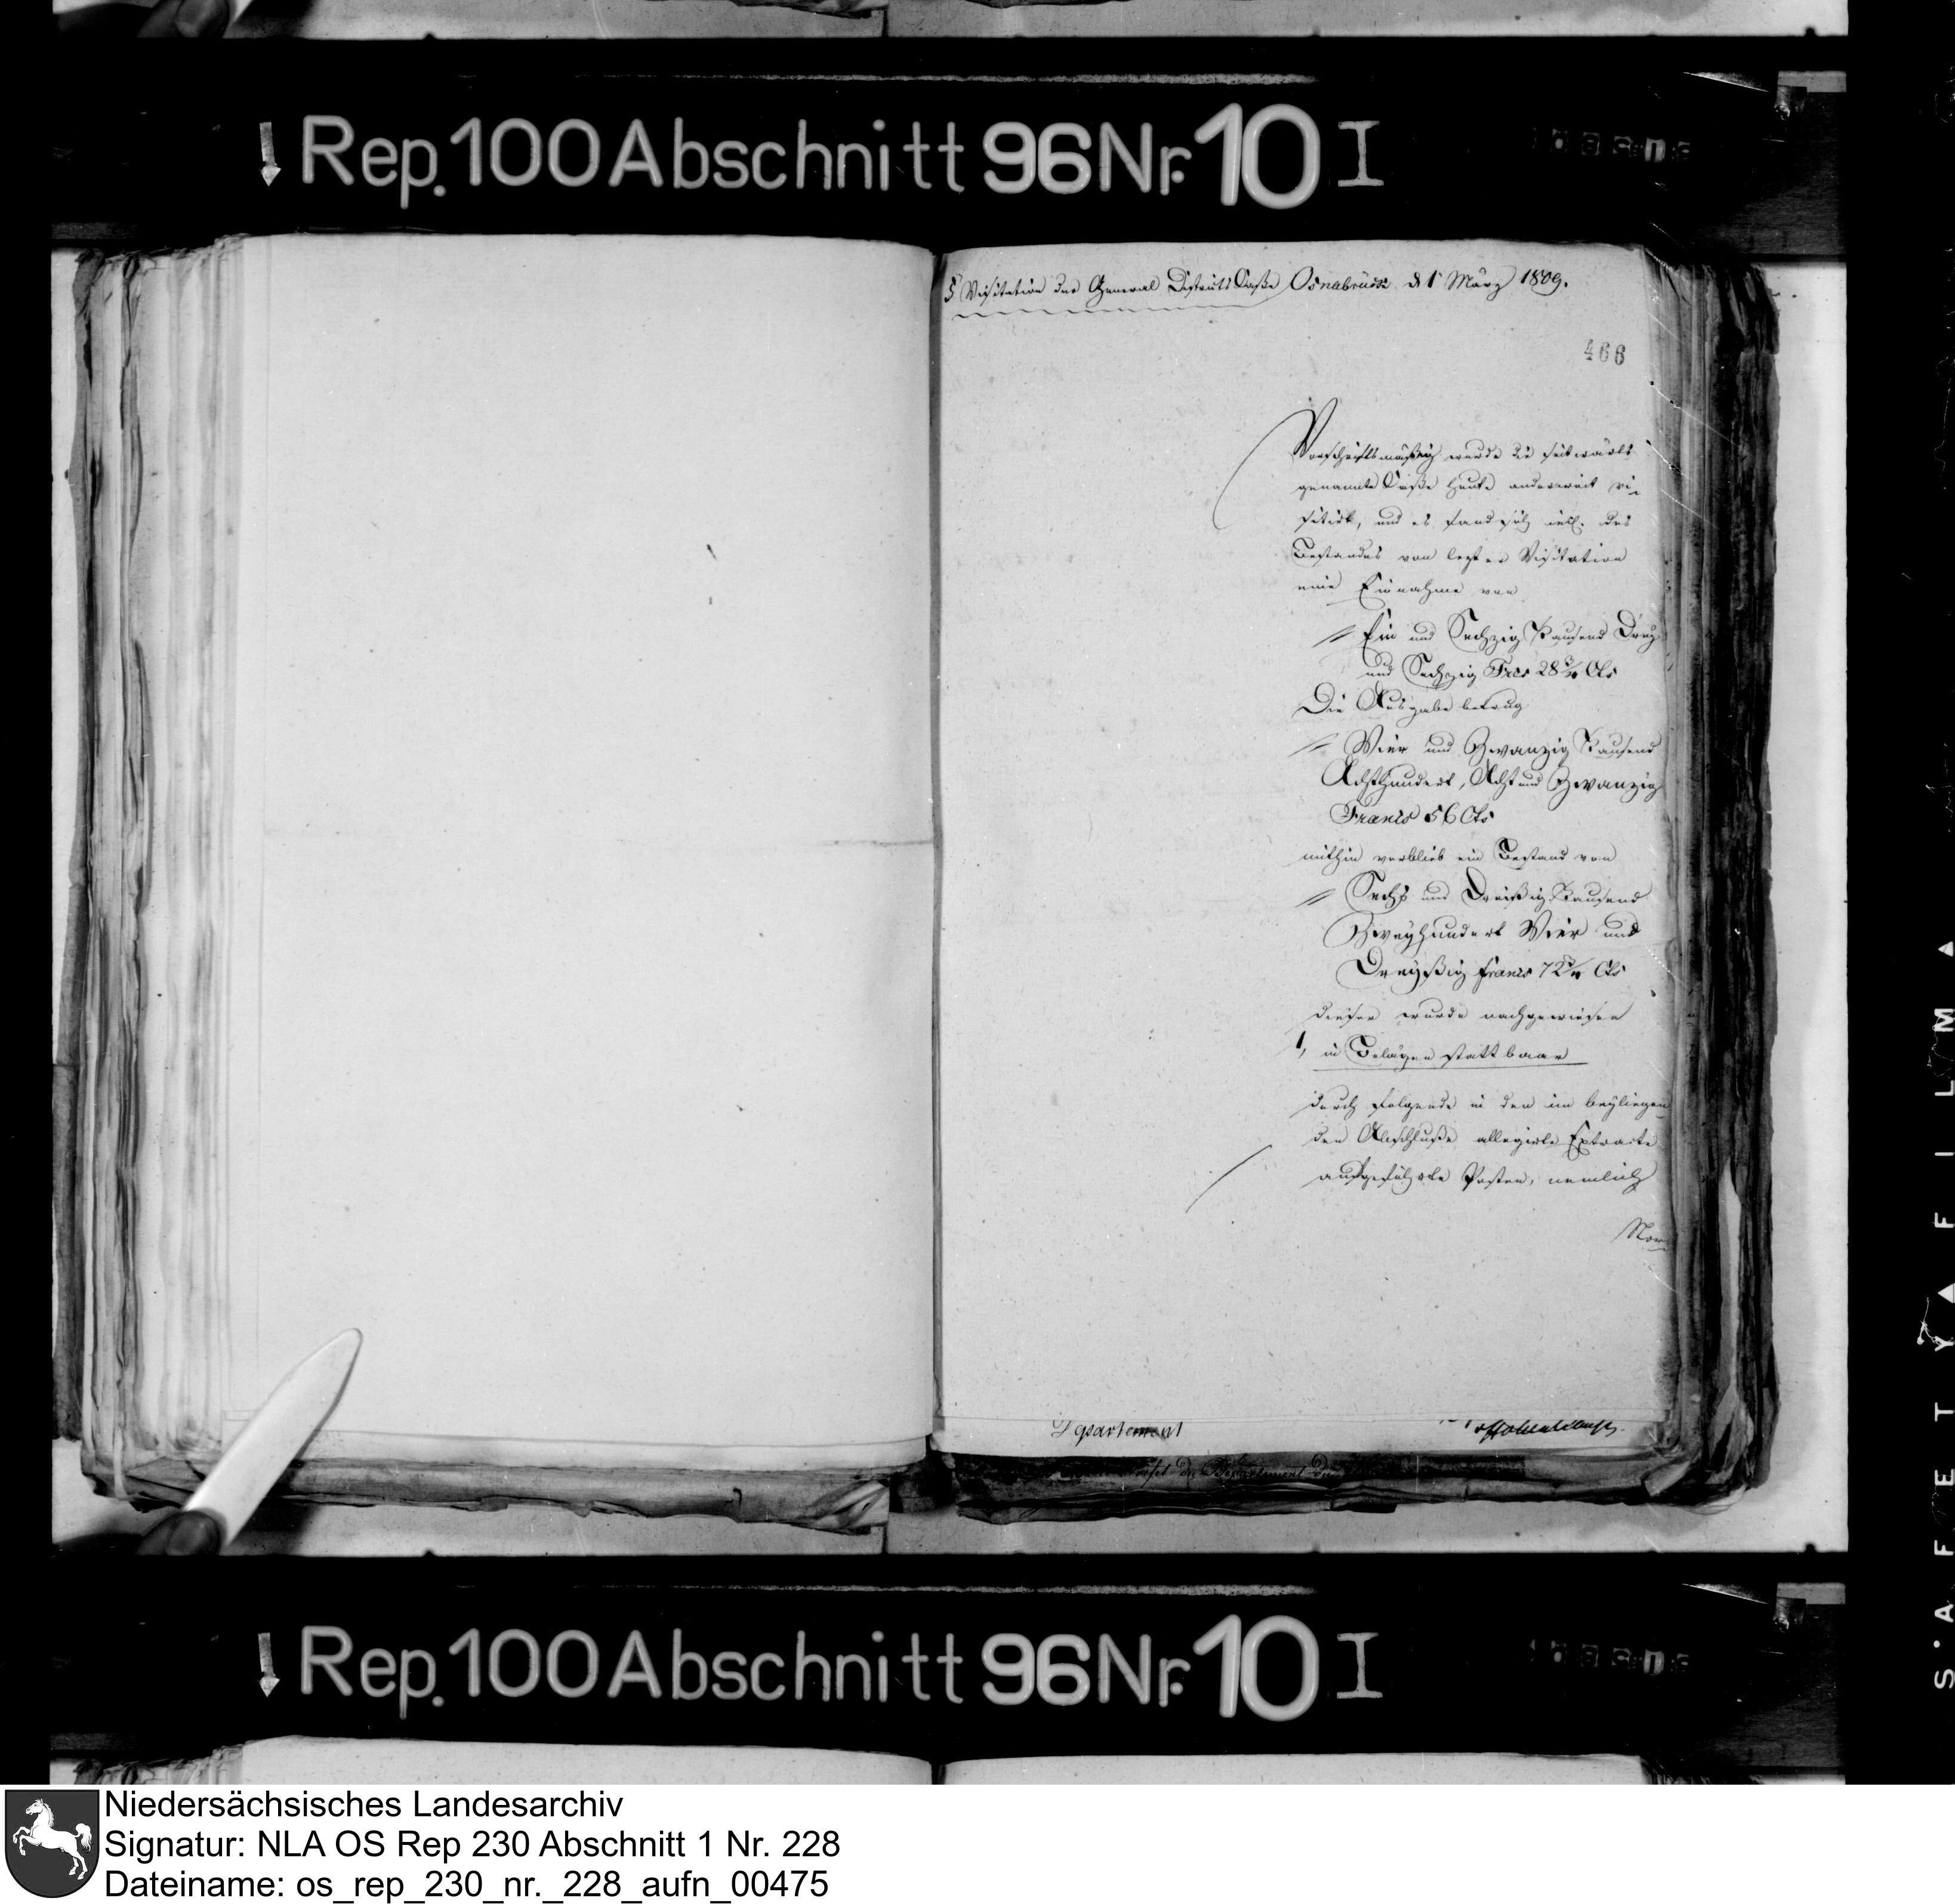 Rep. 100 Abschnitt 96 Nr. 10 I
5 Visitation der General Districts Caße Osnabrück d 1 März 1809.
466
Vorschriftsmäßig wurde die seitwärts
genannte Caße heute anderweit vi-
sitirt, und es fand sich incl. des
Bestandes von lezter Visitation
eine Einnahme von
Ein und Sechzig Tausend Drey
und Sechzig Frcs 28 3/4 Cts
Die Ausgabe betrug
Vier und Zwanzig Tausend
Achthundert, Acht und Zwanzig
Francs 56 Cts
mithin verblieb ein Bestand von
Sechs und Dreißig Tausend
Zweyhundert Vier und
Dreyßig Francs 72 3/4 Cts
dieser wurde nachgewiesen
1, in Belägen statt baar
durch folgende in den im beyliegen-
den Abschluße allegirte Extracte
aufgeführte Posten, nemlich
Departement
Departement
Rep. 100 Abschnitt 96 Nr. 10 I
SAFETY FILM
Niedersächsisches Landesarchiv
Signatur: NLA OS Rep 230 Abschnitt 1 Nr. 228
Dateiname: os_rep_230_nr._228_aufn_00475